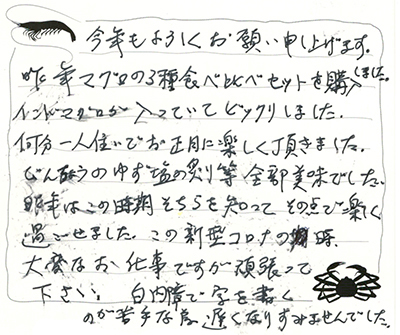 今年もよろしくお願い申し上げます。
昨年マグロの3種食べ比べセットを購入しました。
インドマグロが入っていてビックリしました。
何分一人住いでお正月に楽しく頂きました。
びんちょうのゆず塩の炙り等全部美味でした。
昨年はこの時期そちらを知ってその点で楽しく
過ごせました。この新型コロナの時、
大変なお仕事ですが頑張って
下さい。白内障で字を書く
のが苦手な為遅くなりすみませんでした。